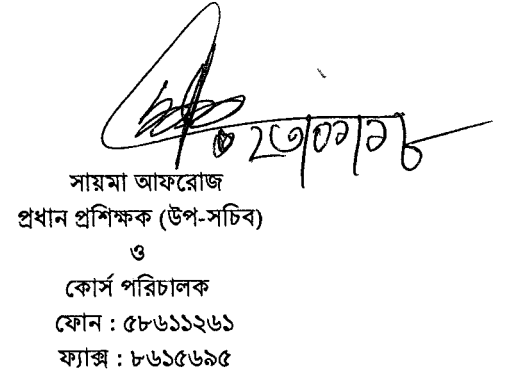 সায়মা আফরোজ
প্রধান প্রশিক্ষক (উপ-সচিব)
ও
কোর্স পরিচালক
ফোন : ৫৮৬১১২৬১
ফ্যাক্স : ৮৬১৫৬৯৫